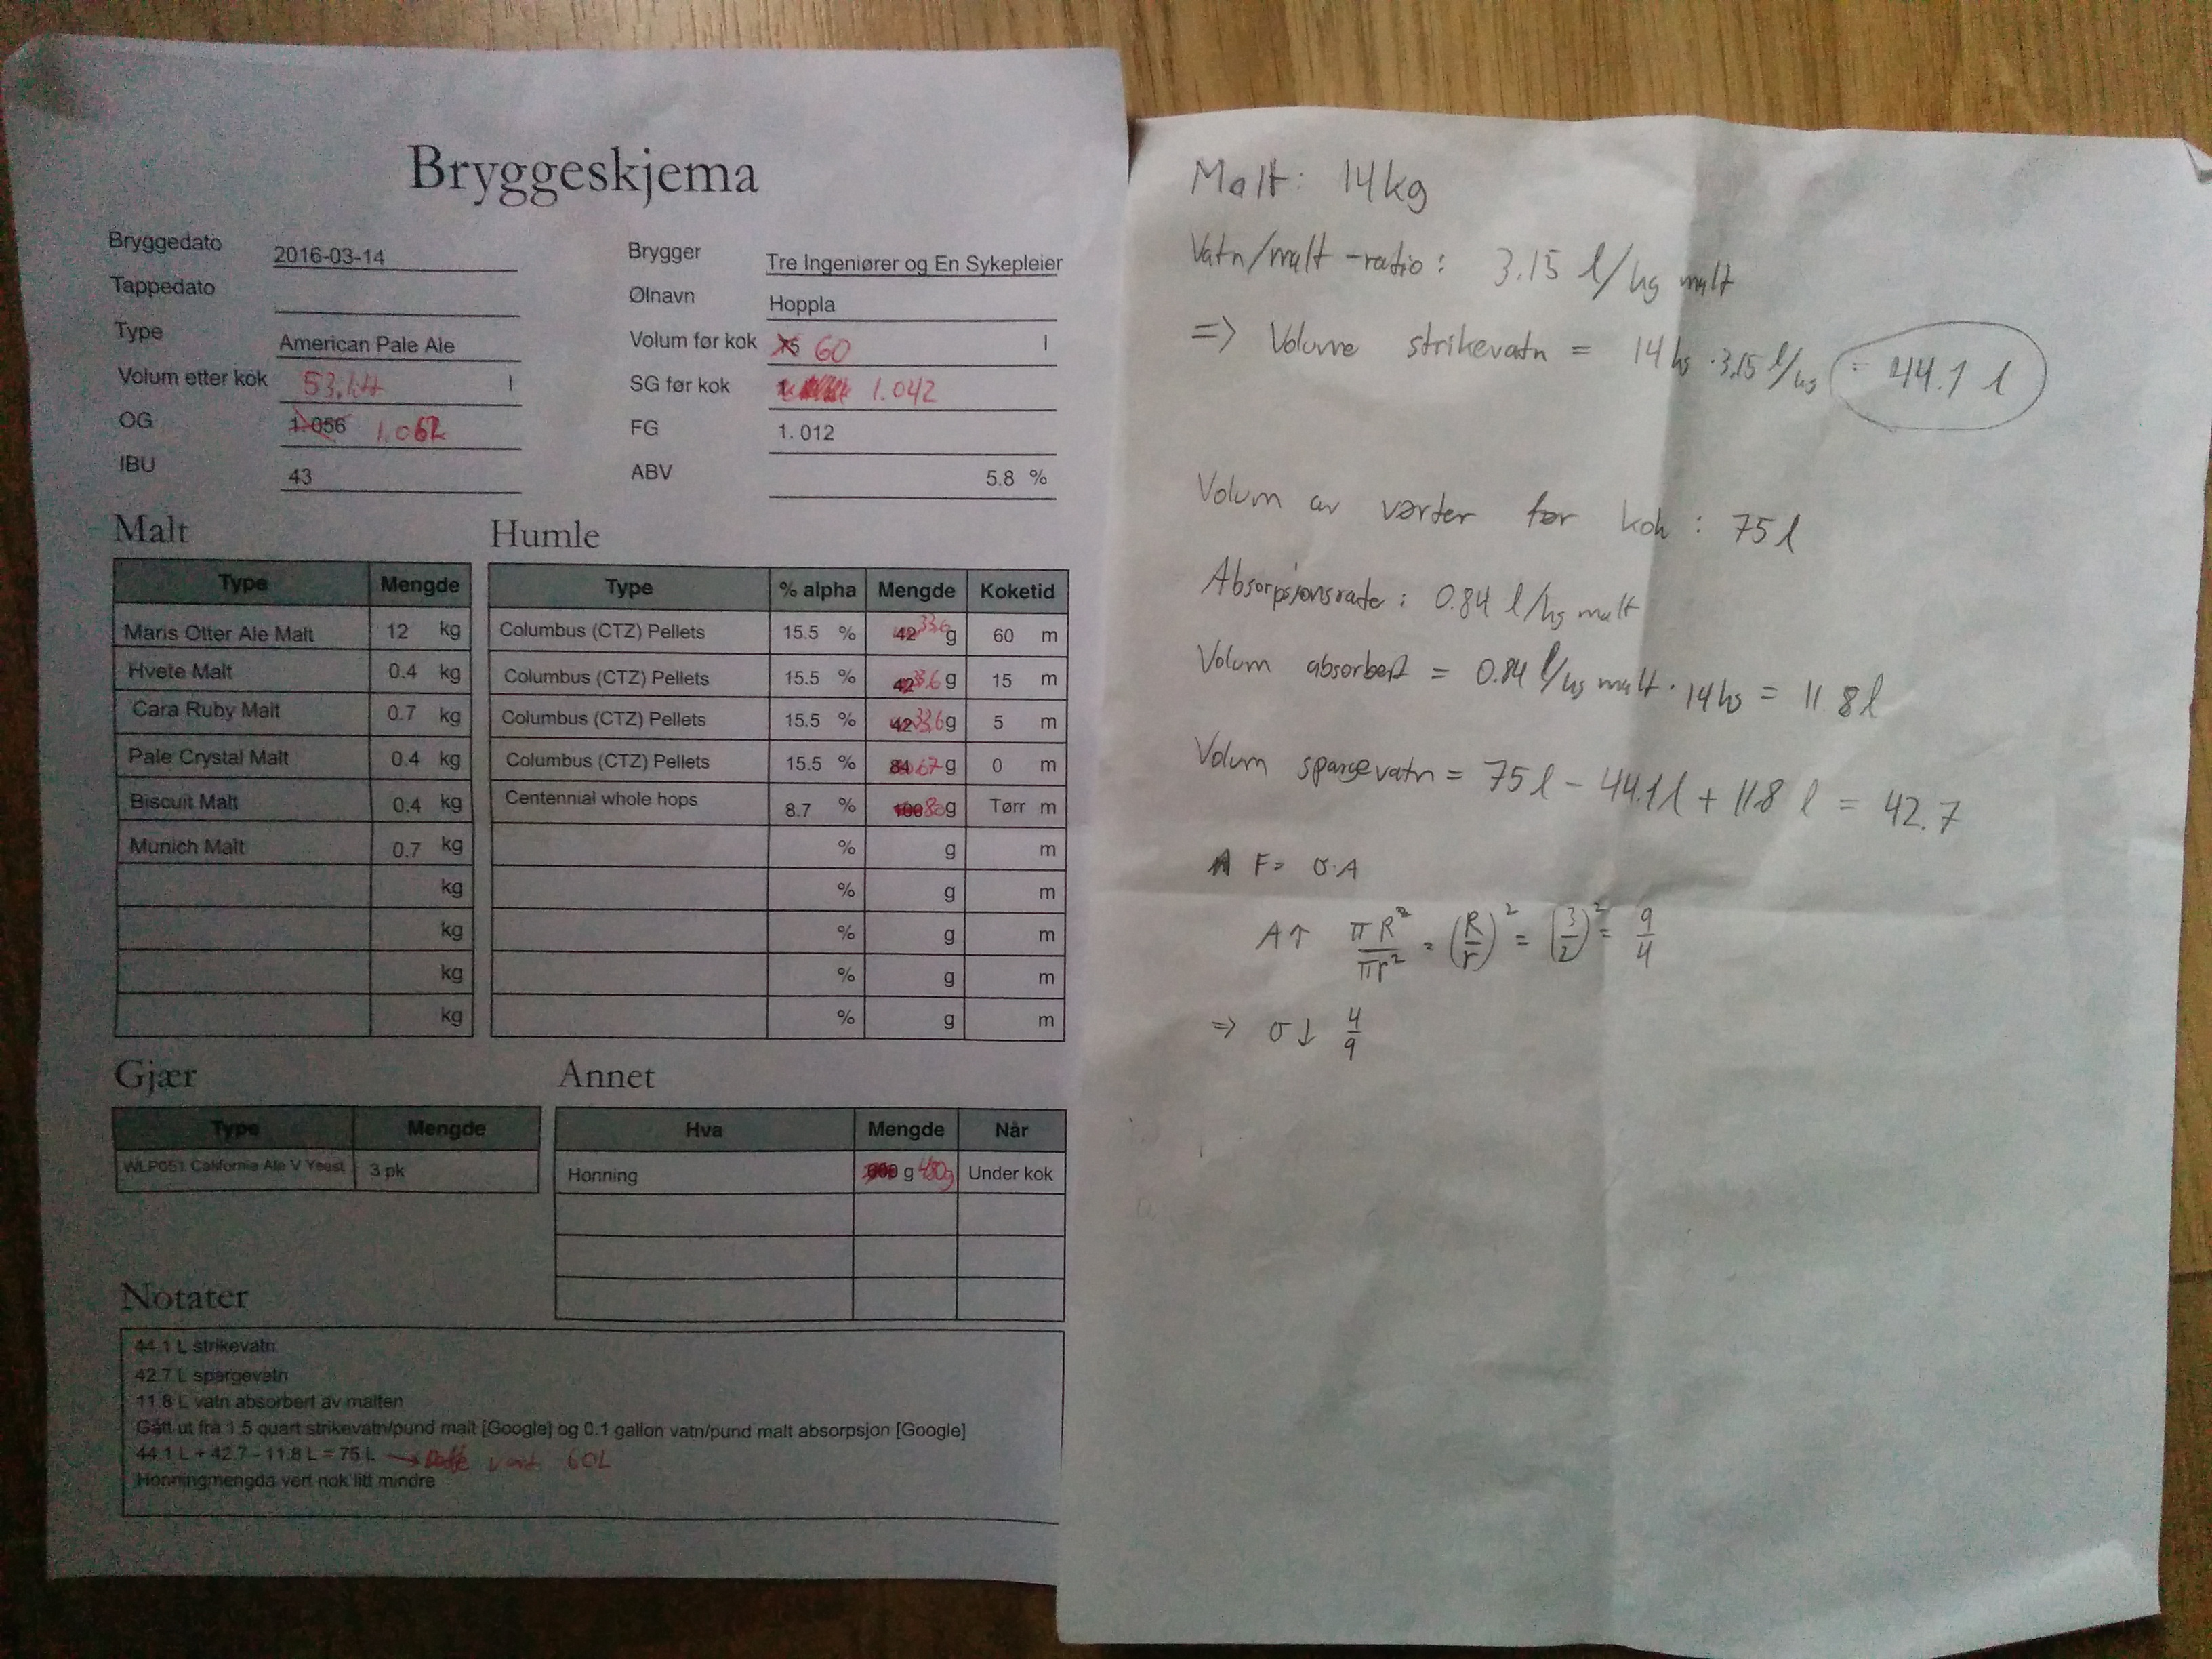 Bryggeskjema
Bryggedato 2016-03-14
Tappedato
Type American Pale Ale
Volum etter kok l
OG 1.056 1.062
IBU 43
Brygger Tre Ingeniører og En Sykepleier
Ølnavn Hoppla
Volum før kok 75 60 l
SG før kok 1. 1.042
FG 1.012
ABV 5.8 %
Malt
Type Mengde
Maris Otter Ale Malt 12 kg
Hvete Malt 0.4 kg
Cara Ruby Malt 0.7 kg
Pale Crystal Malt 0.4 kg
Biscuit Malt 0.4 kg
Munich Malt 0.7 kg
kg
kg
kg
kg
Humle
Type % alpha Mengde Koketid
Columbus (CTZ) Pellets 15.5 % 42 33.6 g 60 m
Columbus (CTZ) Pellets 15.5 % 42 33.6 g 15 m
Columbus (CTZ) Pellets 15.5 % 42 33.6 g 5 m
Columbus (CTZ) Pellets 15.5 % 84 67 g 0 m
Centennial whole hops 8.7 % 100 80 g Tørr m
% g m
% g m
% g m
% g m
% g m
Gjær
Type Mengde
WLP051 California Ale V Yeast 3 pk
Annet
Hva Mengde Når
Honning 600 g 480g Under kok
Notater
44.1 L strikevatn
42.7 L spargevatn
11.8 L vatn absorbert av malten
Gått ut frå 1.5 quart strikevatn/pund malt [Google] og 0.1 gallon vatn/pund malt absorpsjon [Google]
44.1 L + 42.7 - 11.8 L = 75 L → 60L
Honningmengda vert nok litt mindre
Malt: 14kg
Vatn/malt-ratio: 3.15 l/kg malt
=> Volume strikevatn = 14kg · 3.15 l/kg = 44.1 l
Volum av vørter før kok: 75 l
Absorpsjonsrate: 0.84 l/kg malt
Volum absorbert = 0.84 l/kg malt · 14kg = 11.8 l
Volum spargevatn = 75 l - 44.1 l + 11.8 l = 42.7
F = σ·A
A↑ πR²/πr² = (R/r)² = (3/2)² = 9/4
=> σ↓ 4/9